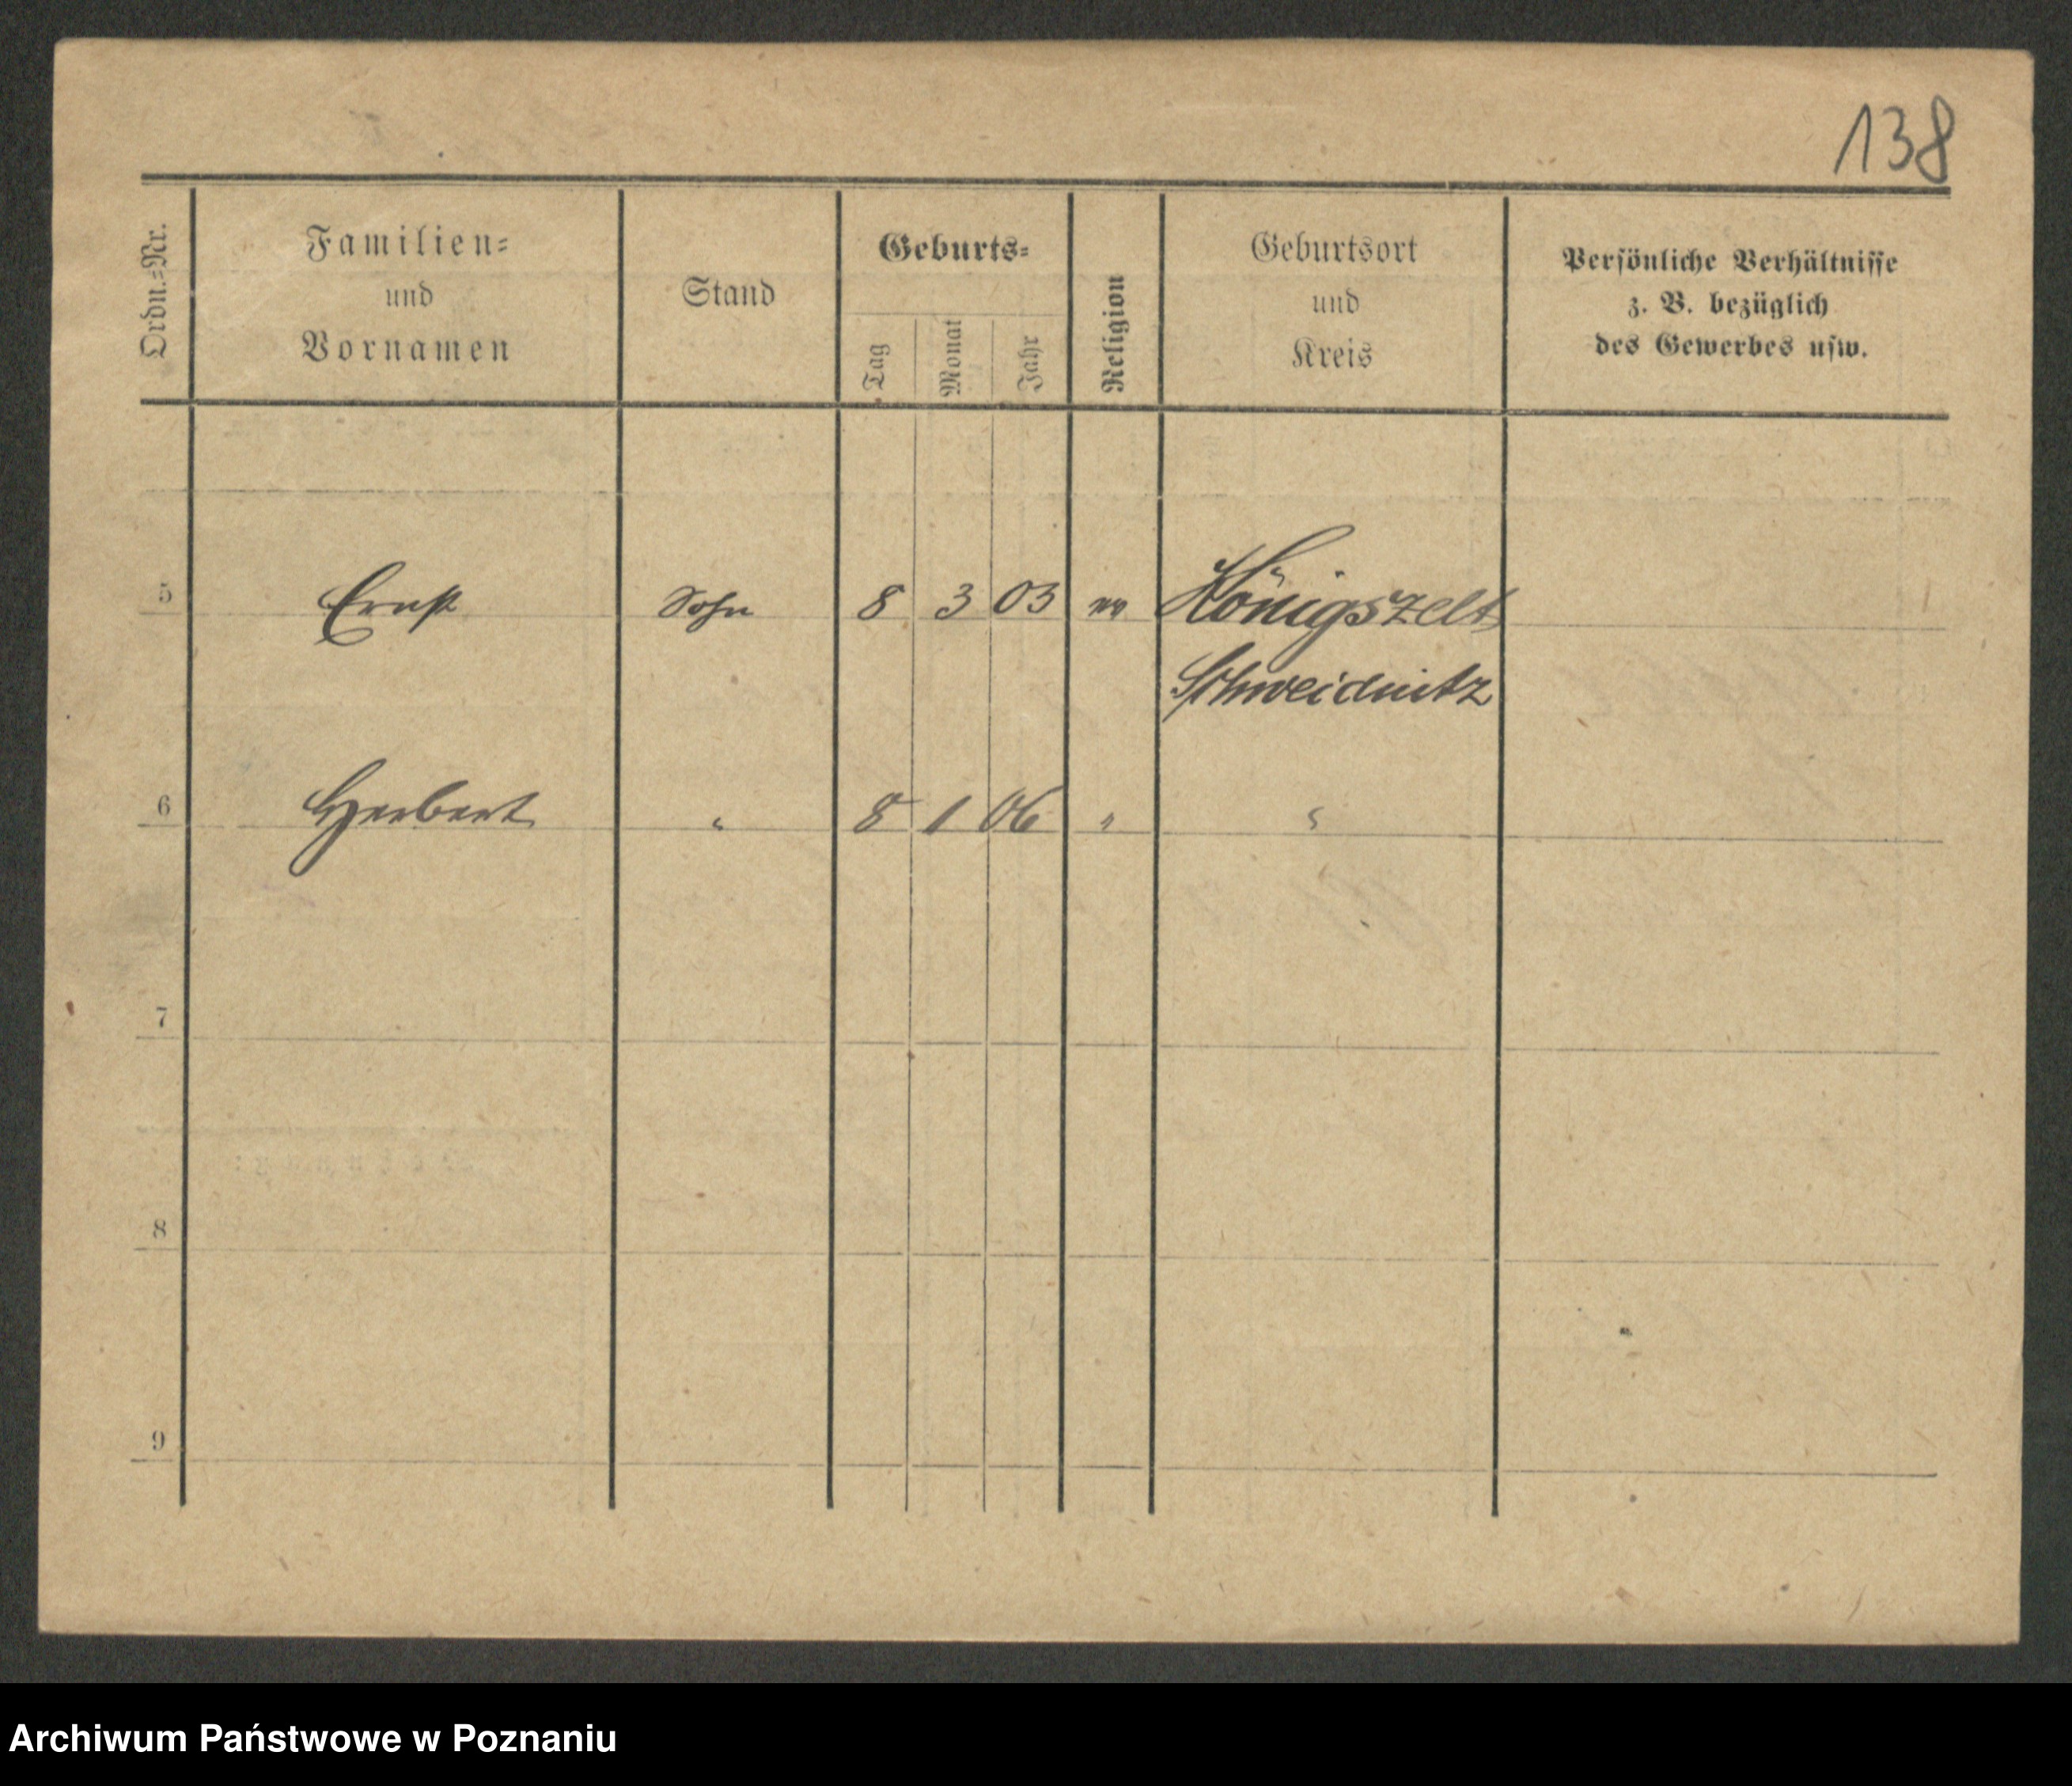 138
Ordn.=Nr.
Familien=
und
Vornamen
Stand
Geburts=
Tag
Monat
Jahr
Religion
Geburtsort
und
Kreis
Persönliche Verhältnisse
z. B. bezüglich
des Gewerbes usw.
5 Ernst Sohn 8 3 03 ev Königszelt
Schweidnitz
6 Herbert " 8 1 06 " "
7
8
9
Archiwum Państwowe w Poznaniu